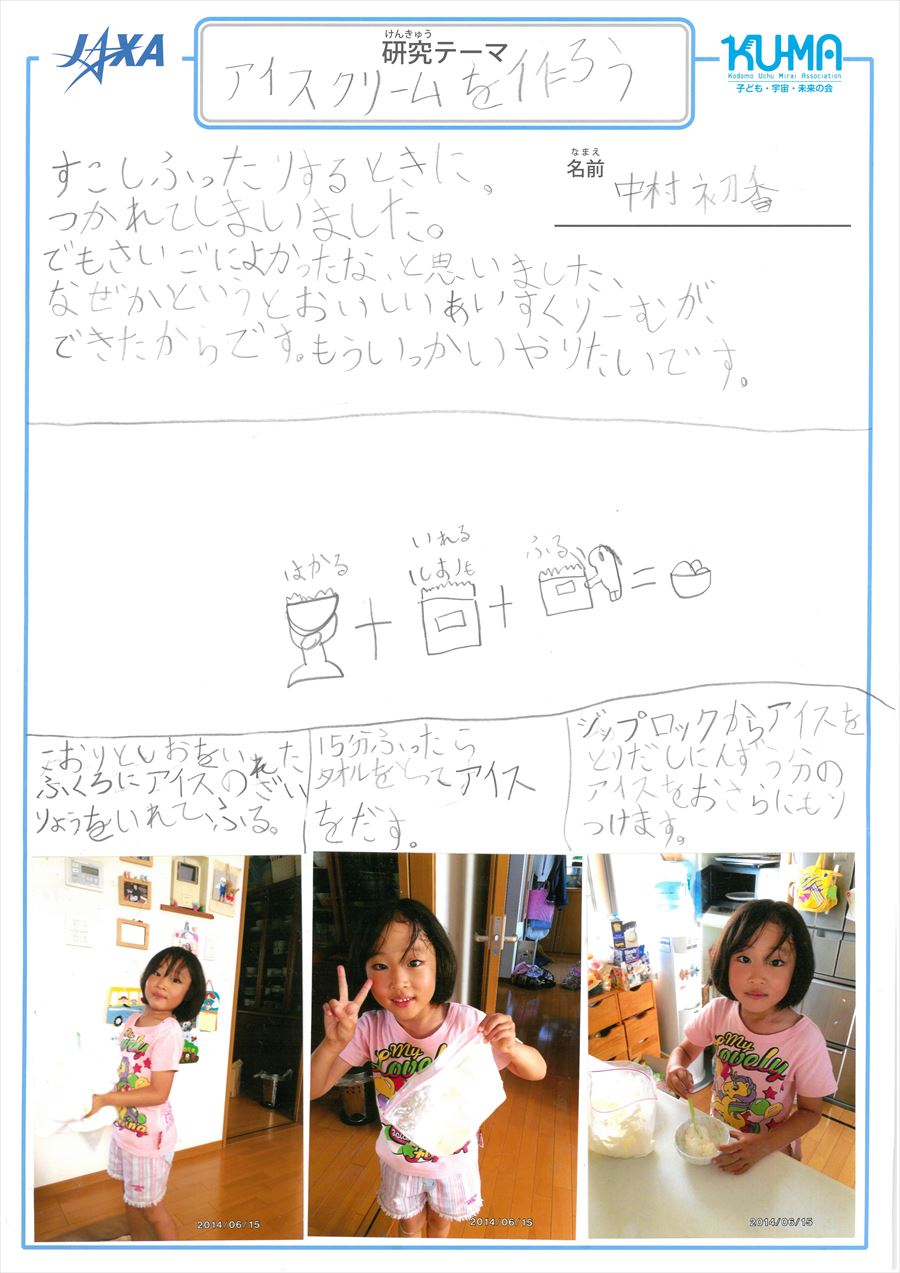 JAXA
けんきゅう
研究テーマ
アイスクリームを作ろう
KU-MA
Kodomo Uchu Mirai Association
子ども・宇宙・未来の会
なまえ
名前
中村初香
すこしふったりするときに。
つかれてしまいました。
でもさいごによかったな、と思いました、
なぜかというとおいしいあいすくりーむが、
できたからです。もういっかいやりたいです。
はかる
いれる
ふる
+
+
=
こおりとしおをいれた
ふくろにアイスのざい
りょうをいれて、ふる。
15分ふったら
タオルをとってアイス
をだす。
ジップロックからアイスを
とりだしにんずう分の
アイスをおさらにもり
つけます。
My
Lovely
2014/06/15
My
Lovely
2014/06/15
My
Lovely
2014/06/15